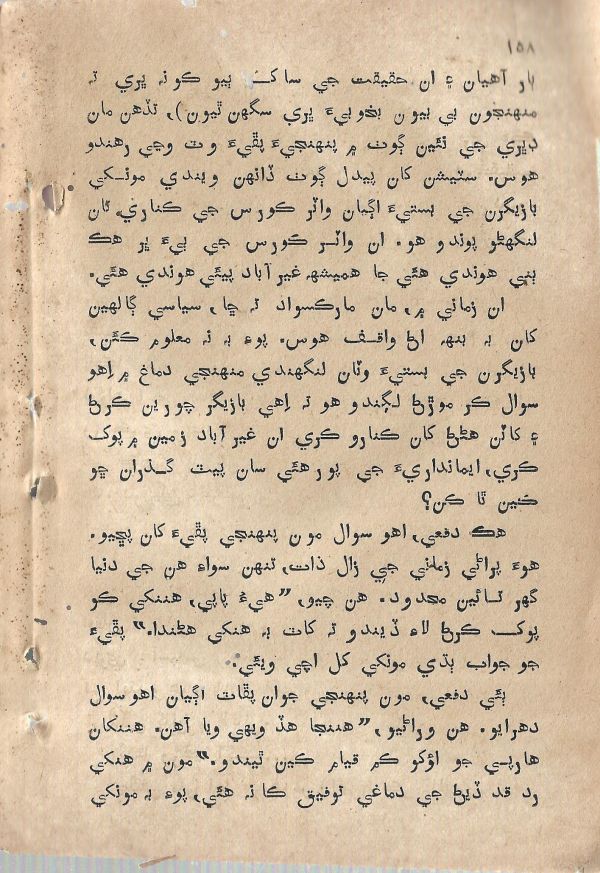 ۱۵۸
بار آهيان ۽ ان حقيقت جي ساک ٻيو ڪونہ ڀري تہ
منهنجون بي بيون بخوبيءَ ڀري سگهن ٿيون)، تڏهن مان
ديري جي نئين ڳوٺ ۾ پنهنجيءَ پڦيءَ وٽ وڃي رهندو
هوس. سٽيشن کان پيدل ڳوٺ ڏانهن ويندي مونکي
بازيگرن جي بستيءَ اڳيان واٽر ڪورس جي ڪناري تان
لنگهڻو پوندو هو. ان واٽر ڪورس جي ٻيءَ ڀر هڪ
ٻني هوندي هئي جا هميشہ غير آباد پيئي هوندي هئي.
ان زماني ۾، مان مارڪسواد تہ ڇا، سياسي ڳالهين
کان بہ بنهہ اڻ واقف هوس. پوءِ بہ نہ معلوم ڪئن،
بازيگرن جي بستيءَ وٽان لنگهندي منهنجي دماغ ۾ اِهو
سوال ڪر موڙڻ لڳندو هو تہ اِهي بازيگر چورين ڪرڻ
۽ کاٽن هڻڻ کان ڪنارو ڪري ان غير آباد زمين ۾ پوک
ڪري، ايمانداريءَ جي پورهئي سان پيٽ گذران ڇو
ڪين ٿا ڪن؟
هڪ دفعي، اهو سوال مون پنهنجي پڦيءَ کان پڇيو.
هوءَ پراڻي زماني جي زال ذات، تنهن سواءِ هن جي دنيا
گهر تائين محدود. هن چيو، ”هيءُ پاپي، هننکي ڪو
پوک ڪرڻ لاءِ ڏيندو تہ کاٽ بہ هنکي هڻندا.“ پڦيءَ
جو جواب ٻڌي مونکي کل اچي ويئي.
ٻئي دفعي، مون پنهنجي جوان پڦاٽ اڳيان اهو سوال
دهرايو. هن وراڻيو، ”هننجا هڏ ويهي ويا آهن. هننکان
هارپي جو اؤکو ڪم قيام ڪين ٿيندو.“ مون ۾ هنکي
رد قد ڏيڻ جي دماغي توفيق ڪا نہ هئي، پوءِ بہ مونکي